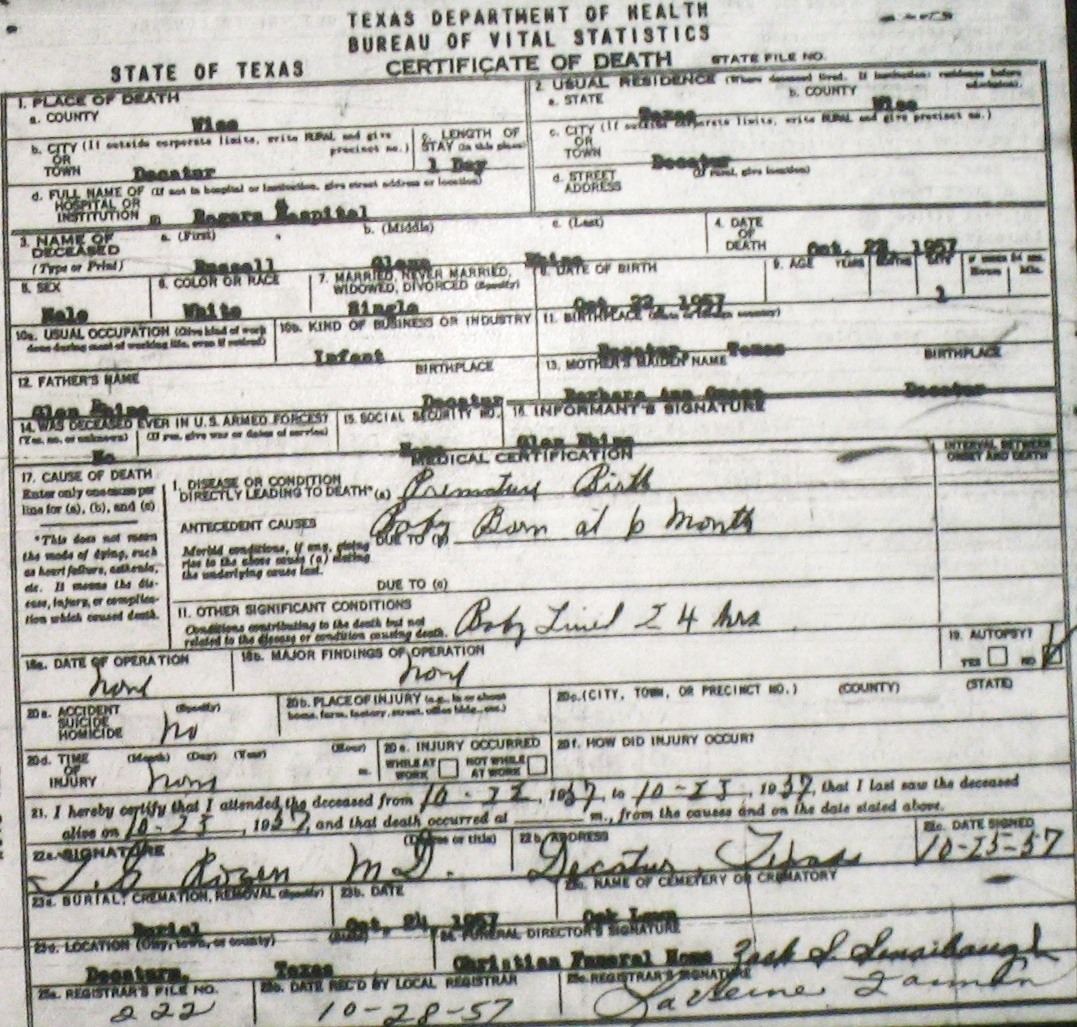 TEXAS DEPARTMENT OF HEALTH
BUREAU OF VITAL STATISTICS
STATE OF TEXAS CERTIFICATE OF DEATH STATE FILE NO.
1. PLACE OF DEATH
a. COUNTY
Wise
2. USUAL RESIDENCE (Where deceased lived. If institution: residence before admission).
a. STATE b. COUNTY
Texas Wise
b. CITY (If outside corporate limits, write RURAL and give
OR precinct no.)
TOWN Decatur
c. LENGTH OF
STAY (in this place)
1 Day
c. CITY (If outside corporate limits, write RURAL and give precinct no.)
OR
TOWN Decatur
d. FULL NAME OF (If not in hospital or institution, give street address or location)
HOSPITAL OR
INSTITUTION Rogers Hospital
d. STREET (If rural, give location)
ADDRESS
3. NAME OF a. (First) b. (Middle) c. (Last)
DECEASED
(Type or Print) Russell Glenn
4. DATE
OF
DEATH Oct. 1957
5. SEX
Male
6. COLOR OR RACE
White
7. MARRIED, NEVER MARRIED,
WIDOWED, DIVORCED (Specify)
Single
8. DATE OF BIRTH
Oct. 22, 1957
9. AGE YEARS MONTHS DAYS IF UNDER 24 HRS.
Hours Min.
1
10a. USUAL OCCUPATION (Give kind of work
done during most of working life, even if retired)
10b. KIND OF BUSINESS OR INDUSTRY
Infant
11. BIRTHPLACE (State or foreign country)
Decatur, Texas
12. FATHER'S NAME BIRTHPLACE
Glen Decatur
13. MOTHER'S MAIDEN NAME BIRTHPLACE
Barbara Ann Decatur
14. WAS DECEASED EVER IN U.S. ARMED FORCES?
(Yes, no, or unknown) (If yes, give war or dates of service)
No
15. SOCIAL SECURITY NO.
None
16. INFORMANT'S SIGNATURE
Glen
MEDICAL CERTIFICATION
INTERVAL BETWEEN
ONSET AND DEATH
17. CAUSE OF DEATH
Enter only one cause per
line for (a), (b), and (c)
*This does not mean
the mode of dying, such
as heart failure, asthenia,
etc. It means the dis-
ease, injury, or complica-
tion which caused death.
I. DISEASE OR CONDITION
DIRECTLY LEADING TO DEATH* (a) Premature Birth
ANTECEDENT CAUSES
DUE TO (b) Baby Born at 6 Month
Morbid conditions, if any, giving
rise to the above cause (a) stating
the underlying cause last.
DUE TO (c)
11. OTHER SIGNIFICANT CONDITIONS
Conditions contributing to the death but not
related to the disease or condition causing death. Baby Lived 24 hrs
18a. DATE OF OPERATION
None
18b. MAJOR FINDINGS OF OPERATION
None
19. AUTOPSY?
YES NO
20a. ACCIDENT (Specify)
SUICIDE
HOMICIDE No
20b. PLACE OF INJURY (e.g., in or about
home, farm, factory, street, office bldg., etc.)
20c. (CITY, TOWN, OR PRECINCT NO.) (COUNTY) (STATE)
20d. TIME (Month) (Day) (Year) (Hour)
OF
INJURY None m.
20e. INJURY OCCURRED
WHILE AT NOT WHILE
WORK AT WORK
20f. HOW DID INJURY OCCUR?
21. I hereby certify that I attended the deceased from 10-22, 1957, to 10-23, 1957, that I last saw the deceased
alive on 10-23, 1957, and that death occurred at m., from the causes and on the date stated above.
22a. SIGNATURE (Degree or title)
M D.
22b. ADDRESS
Decatur, Texas
22c. DATE SIGNED
10-25-57
23a. BURIAL, CREMATION, REMOVAL (Specify)
Burial
23b. DATE
Oct. 24, 1957
23c. NAME OF CEMETERY OR CREMATORY
Oak Lawn
23d. LOCATION (City, town, or county) (State)
Decatur, Texas
24. FUNERAL DIRECTOR'S SIGNATURE
Christian Funeral Home
25a. REGISTRAR'S FILE NO.
222
25b. DATE REC'D BY LOCAL REGISTRAR
10-28-57
25c. REGISTRAR'S SIGNATURE